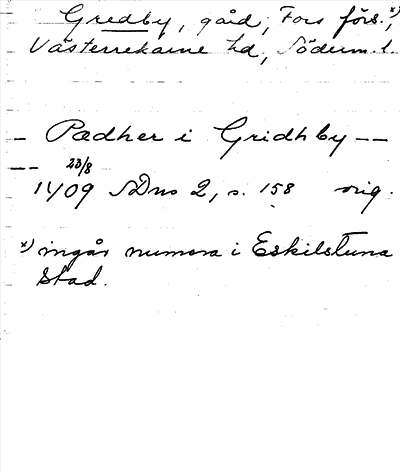 Gredby, gård, Fors förs. x),
Västerrekarne hd, Söderm. l.
– Pædher i Gridhby ––
–– 23/8
1409 SDns 2, s. 158 orig.
x) ingår numera i Eskilstuna
stad.